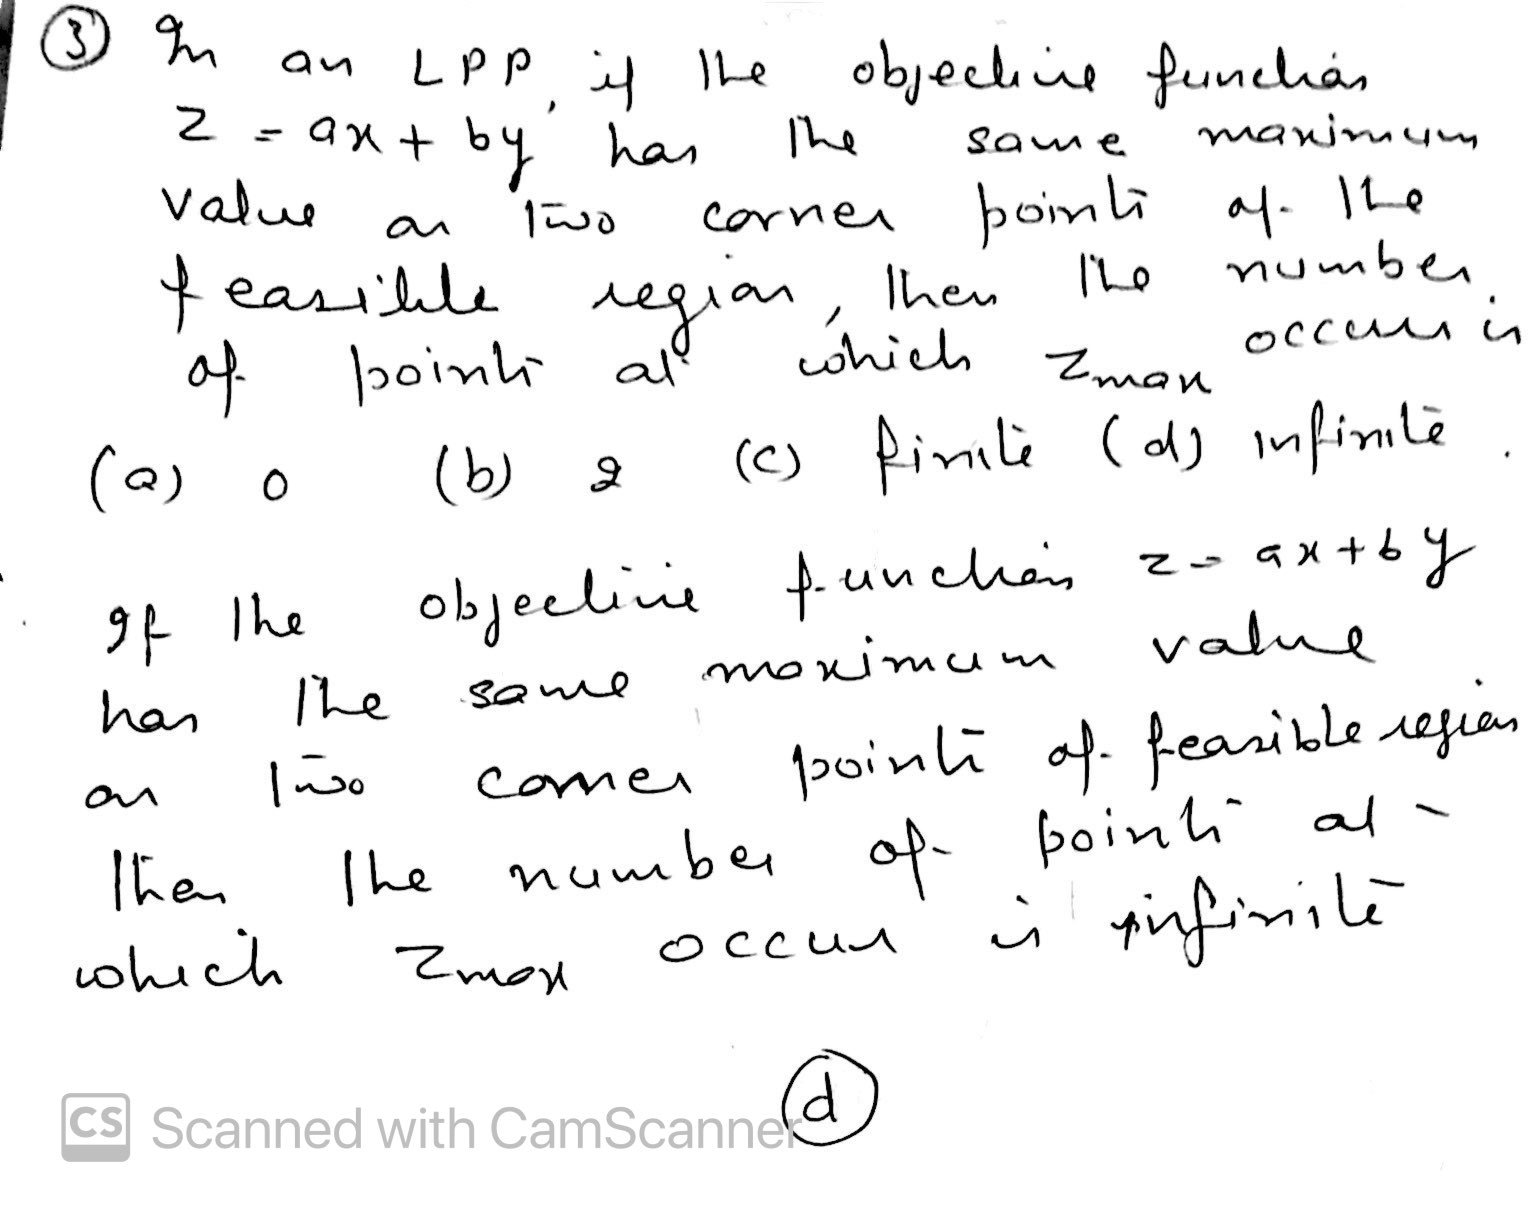 ③ In an LPP, if the objective function
z = ax + by has the same maximum
value on two corner points of the
feasible region, then the number
of points at which Zmax occurs is
(a) 0 (b) 2 (c) finite (d) infinite.
If the objective function z = ax + by
has the same maximum value
on two corner points of feasible region
then the number of points at
which Zmax occur is infinite
(d)
CS Scanned with CamScanner